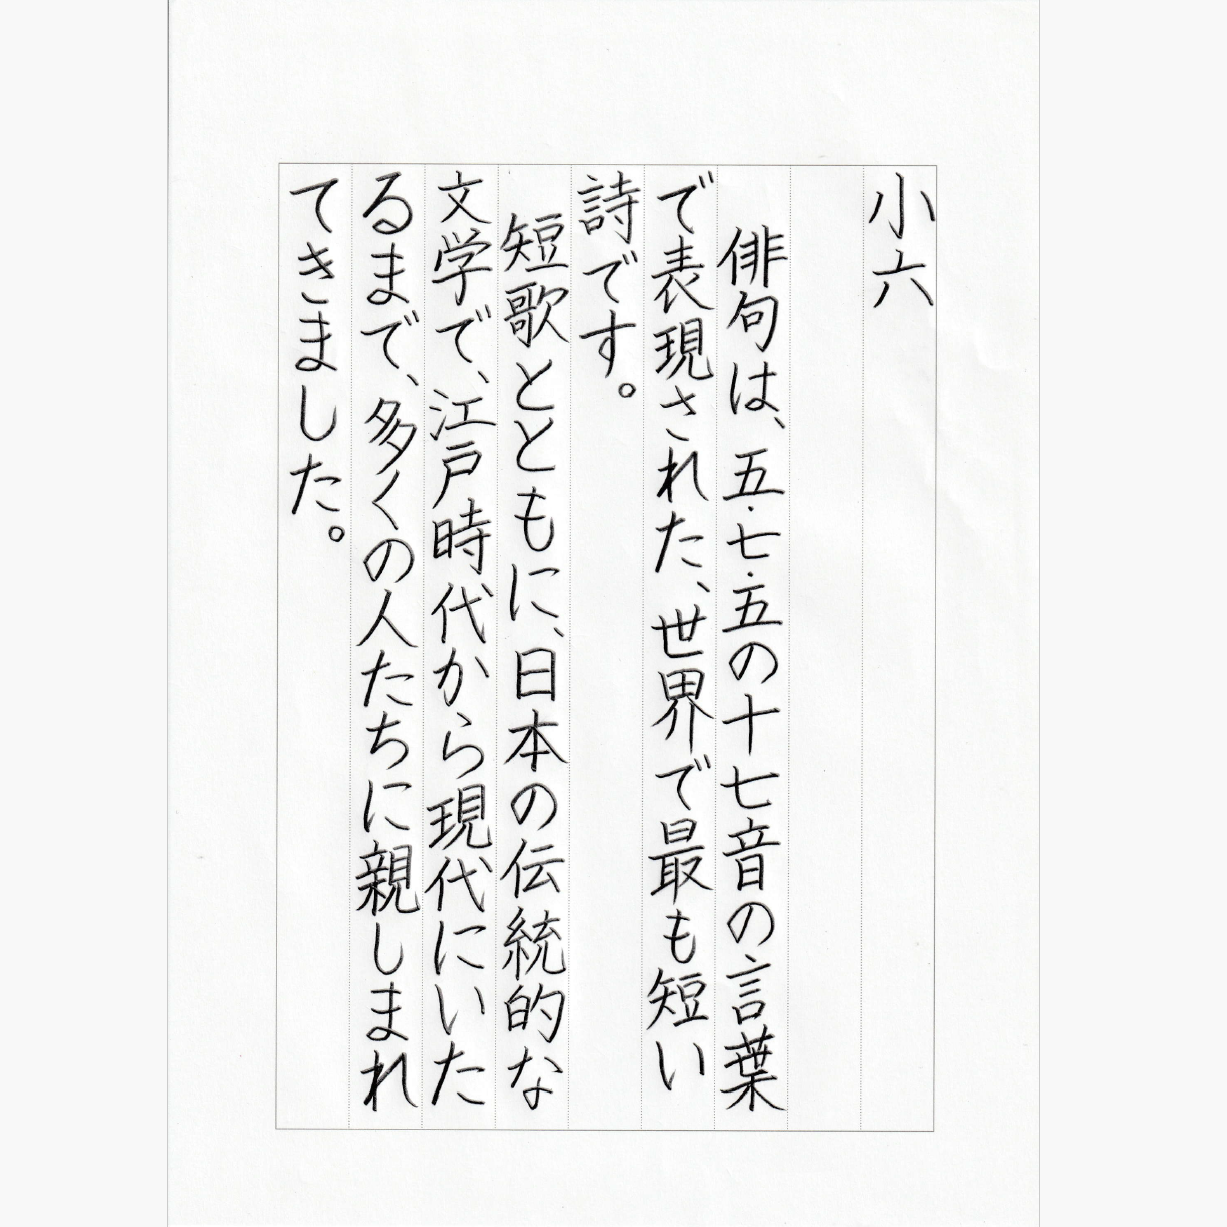 小六
俳句は、五・七・五の十七音の言葉
で表現された、世界で最も短い
詩です。
短歌とともに、日本の伝統的な
文学で、江戸時代から現代にいた
るまで、多くの人たちに親しまれ
てきました。